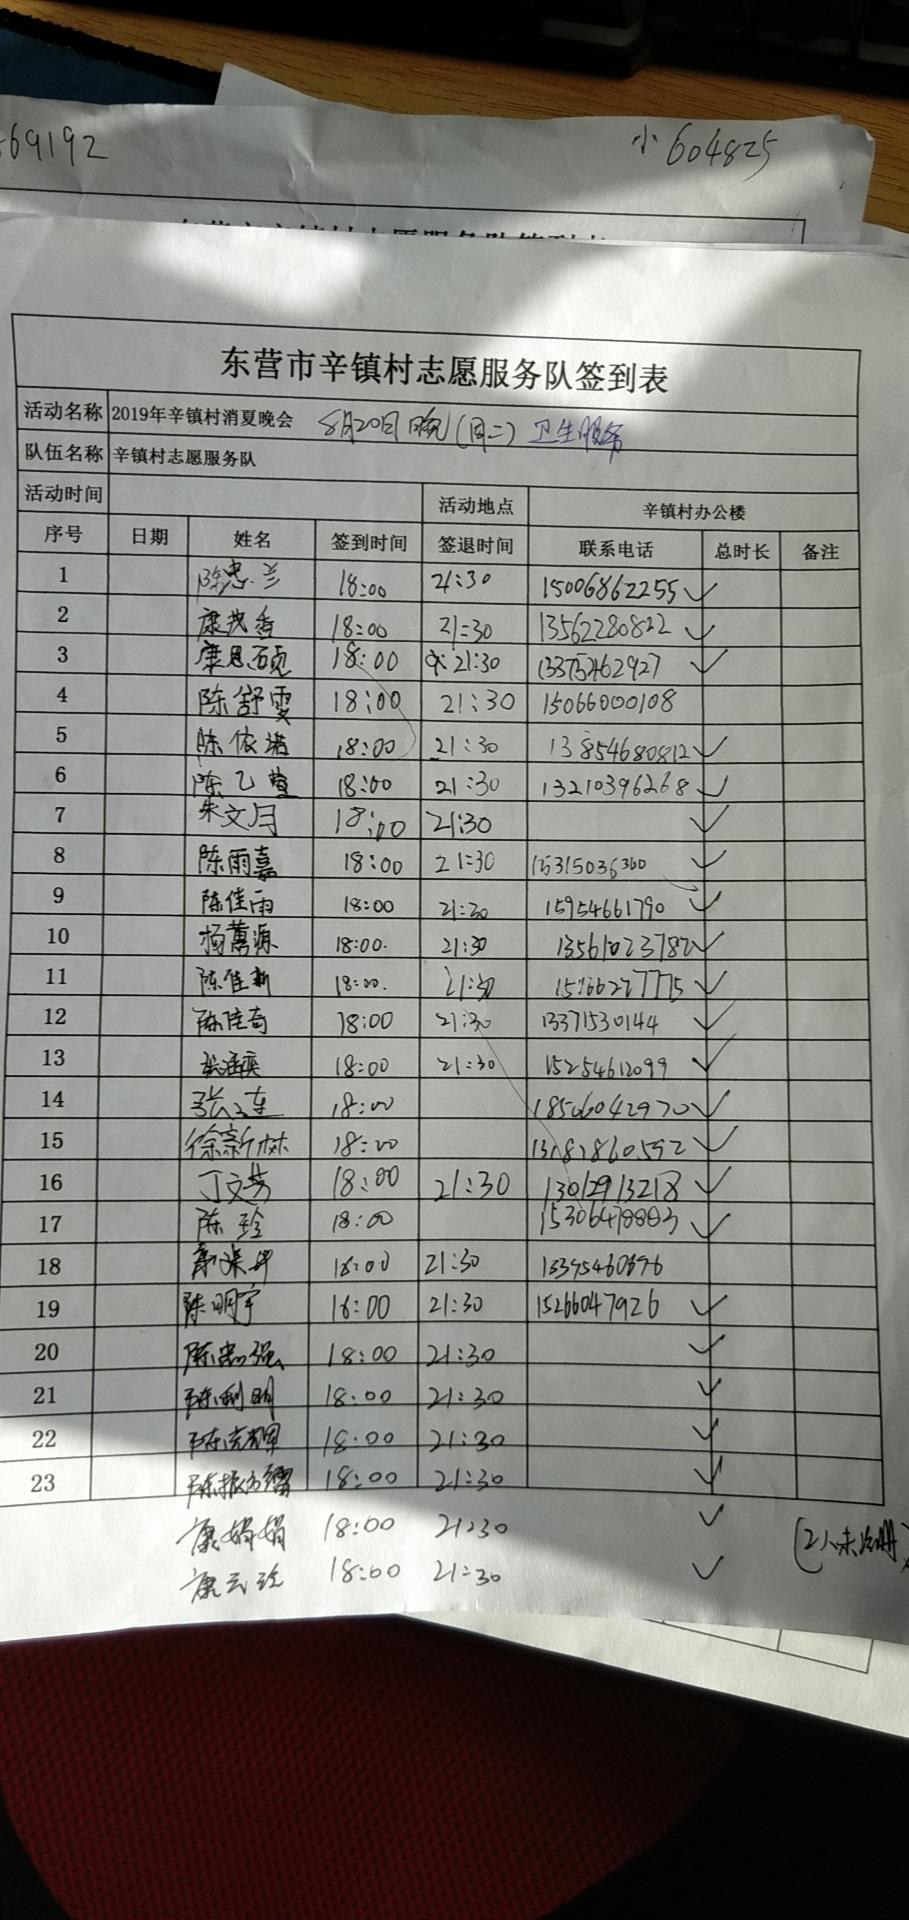 569192
小 604825
东营市辛镇村志愿服务队签到表
活动名称 2019年辛镇村消夏晚会 8月20日晚(周二) 卫生服务
队伍名称 辛镇村志愿服务队
活动时间 活动地点 辛镇村办公楼
序号 日期 姓名 签到时间 签退时间 联系电话 总时长 备注
1 陈忠兰 18:00 21:30 15006862255 ✓
2 康茂香 18:00 21:30 13562280822 ✓
3 康恩硕 18:00 21:30 ✓
4 陈舒雯 18:00 21:30 15066000108
5 陈依诺 18:00 21:30 13854680812 ✓
6 陈乙萱 18:00 21:30 13210396268 ✓
7 朱文月 18:00 21:30 ✓
8 陈雨嘉 18:00 21:30 ✓
9 陈佳雨 18:00 21:30 15954661790 ✓
10 杨蕙源 18:00. 21:30 13561023782 ✓
11 陈佳新 18:00. 21:30 ✓
12 陈佳奇 18:00 21:30 13371530144 ✓
13 18:00 21:30 15254612099 ✓
14 18:00 18506042970 ✓
15 徐新林 18:00 ✓
16 丁文芳 18:00 21:30 13012913218 ✓
17 陈玲 18:00 ✓
18 18:00 21:30
19 陈明宇 18:00 21:30 15266047926 ✓
20 陈忠强 18:00 21:30 ✓
21 陈利明 18:00 21:30 ✓
22 18:00 21:30 ✓
23 18:00 21:30 ✓
康娟娟 18:00 21:30 ✓ (2人未注册)
康云玲 18:00 21:30 ✓